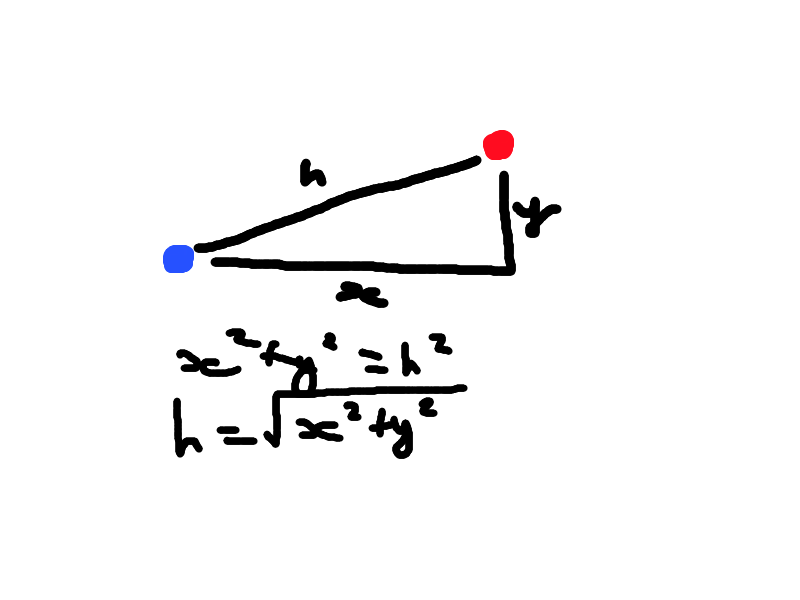 h
y
x
x² + y² = h²
h = √(x² + y²)